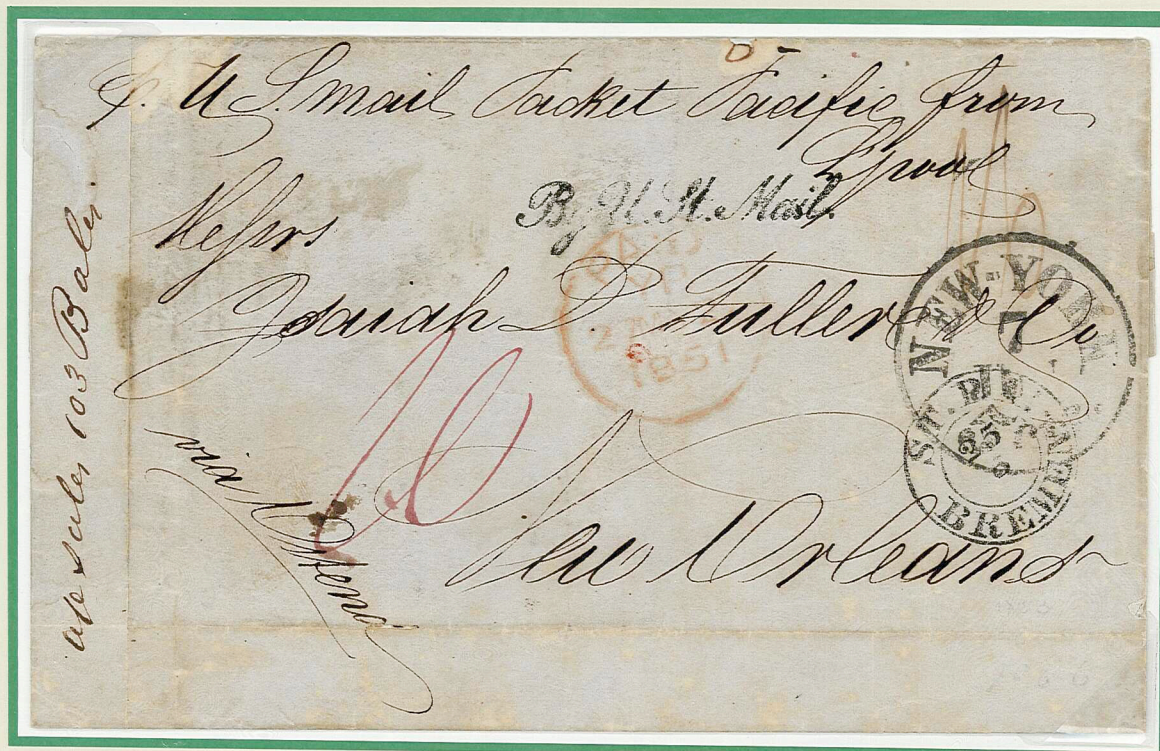 p. U S. mail Packet Pacific from
Lpool
By U. St. Mail.
Messrs
Josiah D Fuller & Co
PAID
1851
NEW-YORK
7
ST. P. BREMEN
65
20
via Ostend
New Orleans
a/c sales 103 Bales